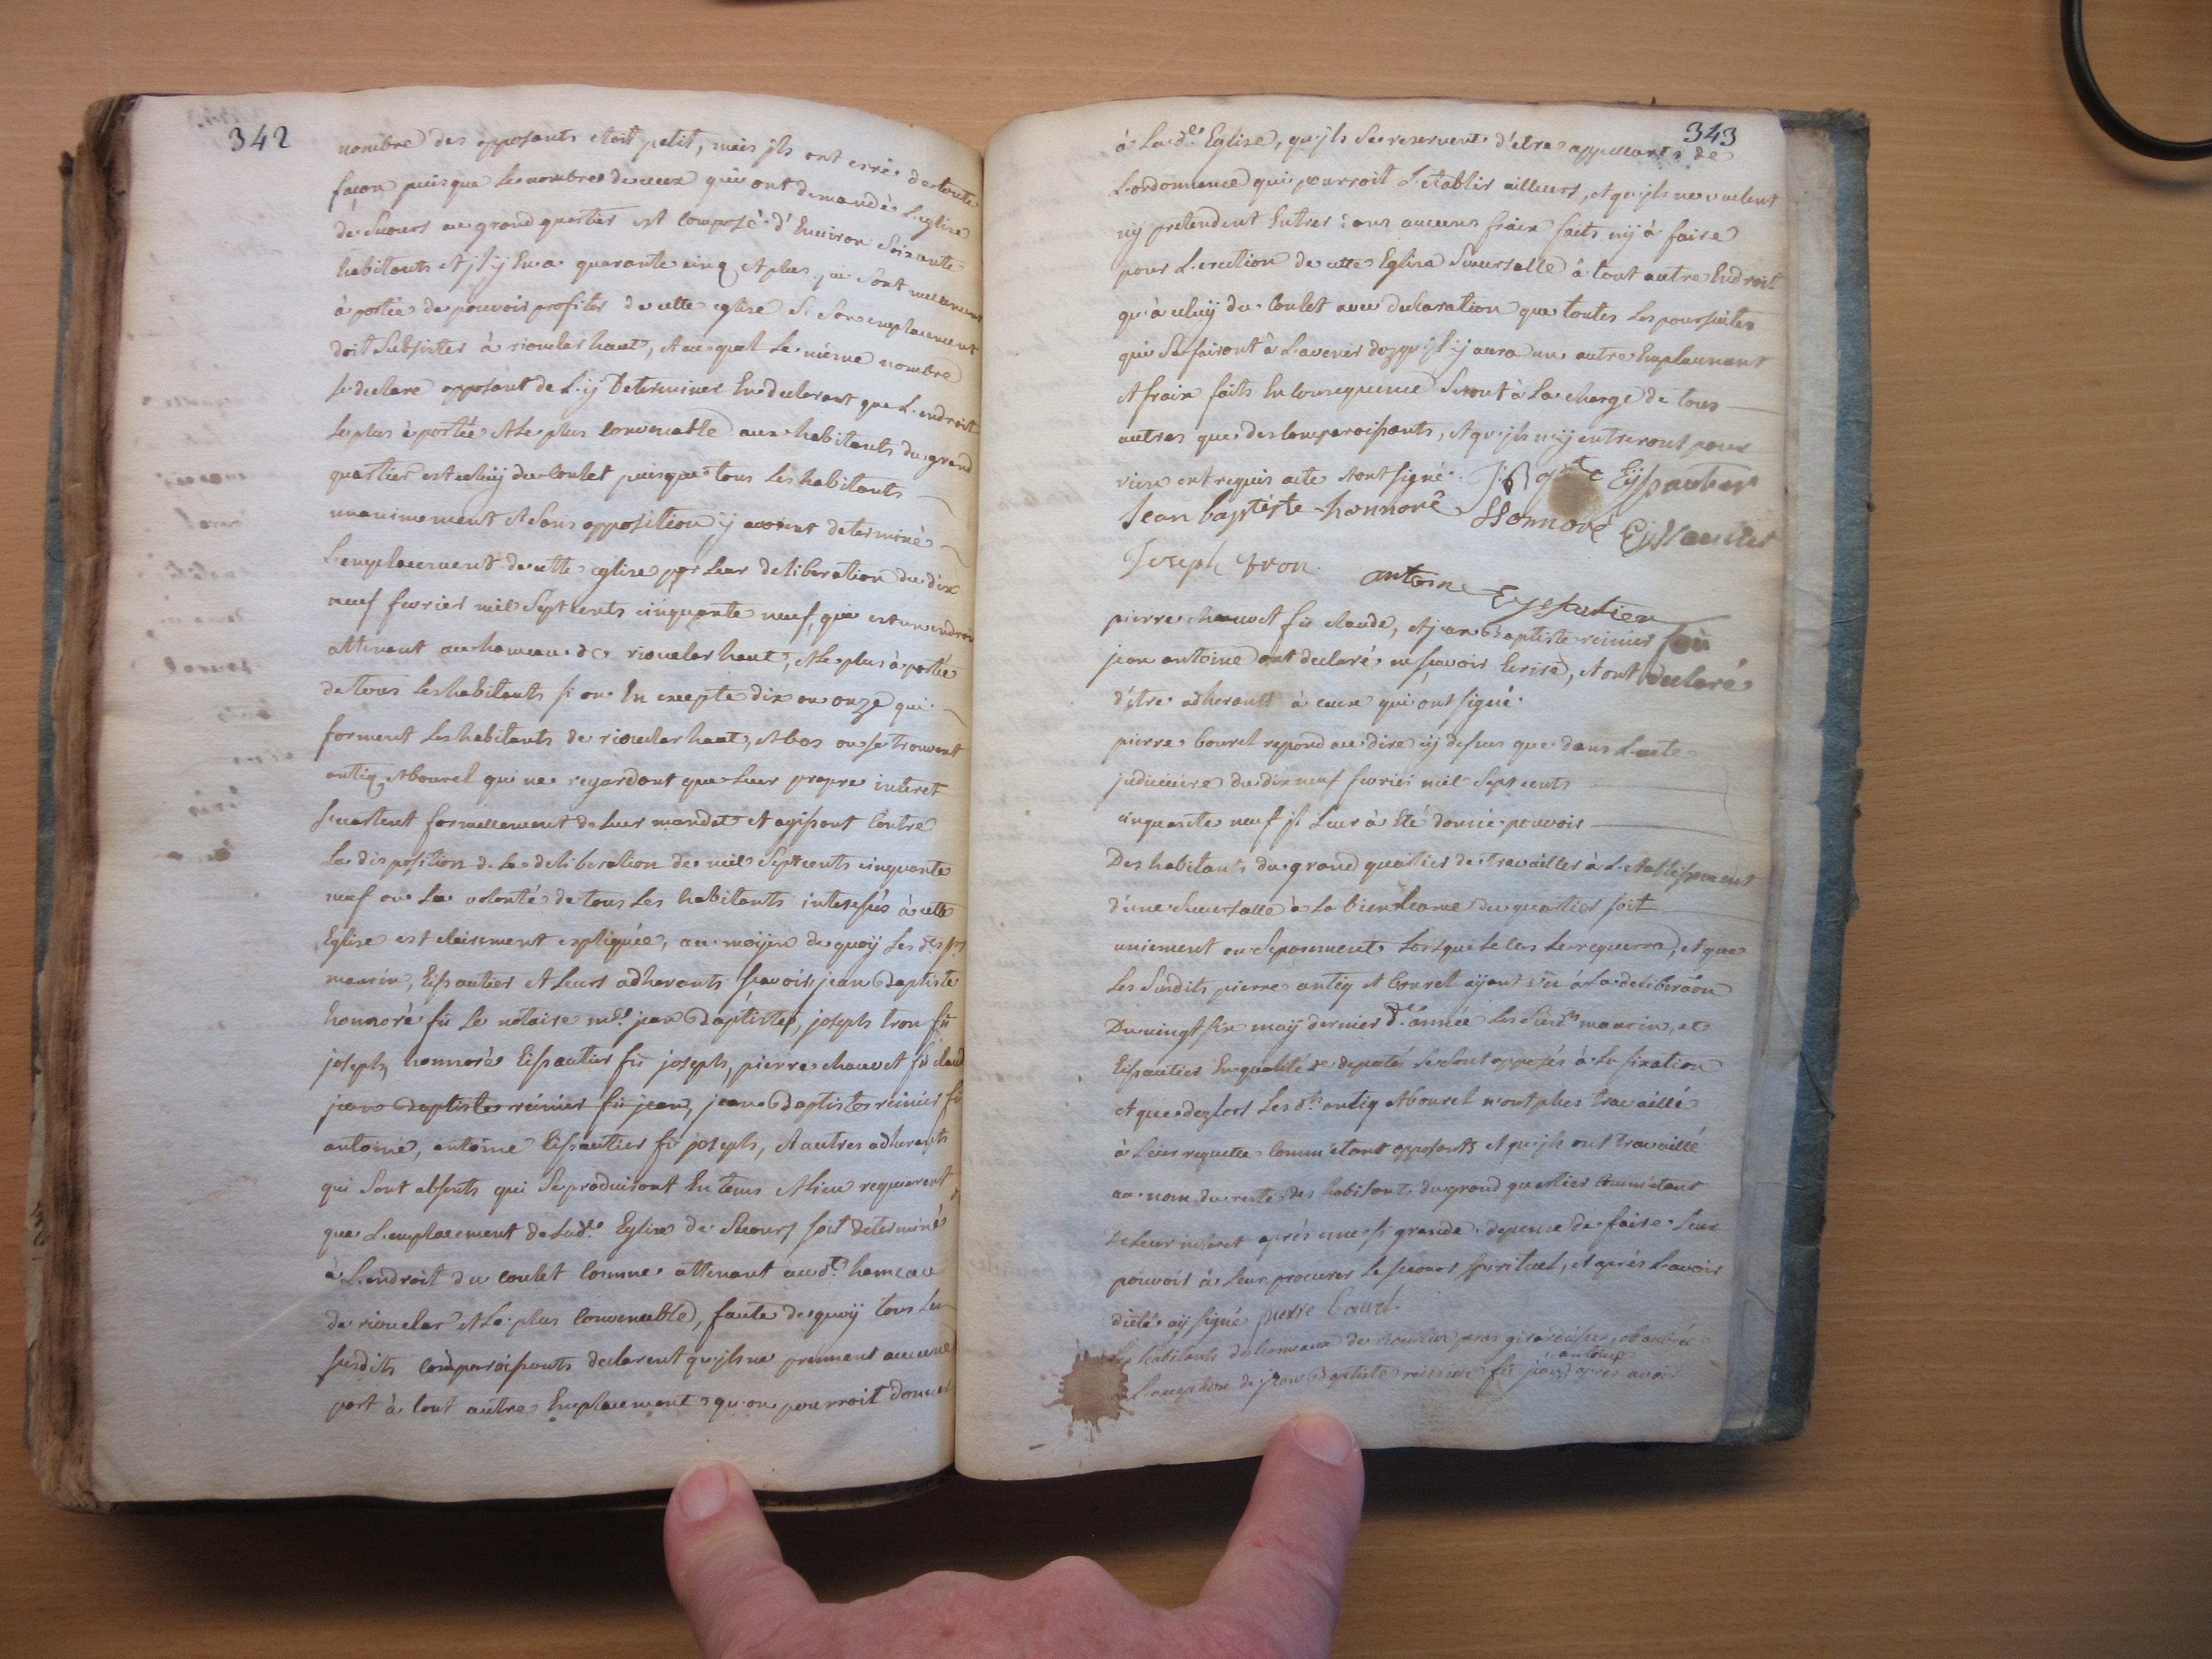 342
nombre des opposants etoit petit, mais jls ont erré de toute
façon puis que le nombre de ceux qui ont demandé L'eglise
de Secours au grand quartier est composé d'Environ Soixante
habitants et jl y En a quarante cinq et plus qui Sont
à portée de pouvoir profiter de cette eglise Si Son emplacement
doit Subsister à rioucl­ar haut, et au quel Le même nombre
se declare opposant de L'ÿ Determiner En declarant que L'endroit
Le plus à portée et Le plus Convenable aux habitants du grand
quartier est celuÿ du Coulet puisque tous Les habitants
unanimement et Sans opposition ÿ avoient determiné
L'emplacement de cette eglise par Leur deliberation du dix
neuf fevrier mil Sept cents cinquante neuf, qui est un endroit
attenant au hameau de rouclar haut, et Le plus à portée
de tous Les habitants si on En excepte dix ou onze qui
forment Les habitants de rouclar haut, et bas ou se trouvent
antiq et bourel qui ne regardant que Leur propre interet
s'ecartent formellement de Leur mandat et agissent Contre
La disposition de La deliberation de mil Sept cents cinquante
neuf ou La volonté de tous Les habitants interessés à cette
Eglise est clairement expliquée, au moÿen de quoÿ Les drs
maurin, Eissautier et Leurs adherants scavoir jean Baptiste
honnoré fû Le notaire me jean Baptiste, joseph tron fû
joseph, honnoré Eissautier fû joseph, pierre chauvet fû claude
jean Baptiste reinier fû jean, jean Baptiste reinier fû
antoine, antoine Eissautier fû joseph, et autres adherants
qui Sont absents qui Se produiront En tems et Lieu requierent
que L'emplacement de Lade Eglise de Secours soit determiné
à L'endroit du coulet Comme attenant au dt hameau
de rouclar et Le plus Convenable, faute de quoÿ tous Les
susdits Comparoissants declarent qu'jls ne prennent aucune
part à tout autre Emplacement qu'on pourroit donner
343
à La de Eglise, qu'jls Se reservent d'etre appellants de
L'ordonnance qui pourroit L'etablir ailleurs, et qu'jls ne veulent
nÿ pretendent Entrer dans aucuns fraix faits nÿ à faire
pour L'erection de cette Eglise Succursalle à tout autre Endroit
qu'à celuÿ du Coulet avec declaration que toutes Les poursuites
qui Se fairont à L'avenir dez qu'jl ÿ aura un autre Emplacement
et fraix faits En Consequence Seront à La charge de tous
autres que des Comparoissants, et qu'jls n'ÿ entreront pour
rien ont requis acte et ont signé. J B Eyssautier
Jean baptiste honnoré Honnoré Eyssautier
Joseph tron
antoine Eyssautier
pierre chauvet fû claude, et jean Baptiste reinier fû
jean antoine ont declaré ne scavoir Ecrire, et ont declaré
d'être adherants à ceux qui ont signé.
pierre bourel repond au dire cÿ dessus que dans L'acte
judiciaire du dix neuf fevrier mil Sept cents
cinquante neuf jl Leur à été donné pouvoir
Des habitants du grand quartier de travailler à L'etablissement
d'une Succursalle à La bienseance du quartier soit
uniement ou Séparement Lorsque Le Cas Le requerra, et que
Les Susdits pierre antiq et bourel aÿant vû à La deliberaõn
Du vingt six maÿ dernier de année Les Susds maurin, et
Eissautier En qualité de deputés Se Sont opposés à La fixation
et que dez lors Les dts antiq et bourel n'ont plus travaillé
à Leur requette Comm'etant opposants et qu'jls ont travaillé
au nom du reste des habitants du grand quartier Comm'etant
De Leur interet après une si grande depence de faire Leur
pouvoir à Leur procurer Le secours spirituel, et après L'avoir
dicté aÿ signé pierre bourel.
Les habitants du hameau de
à L'exception de jean Baptiste reinier fû jean antoine après avoir